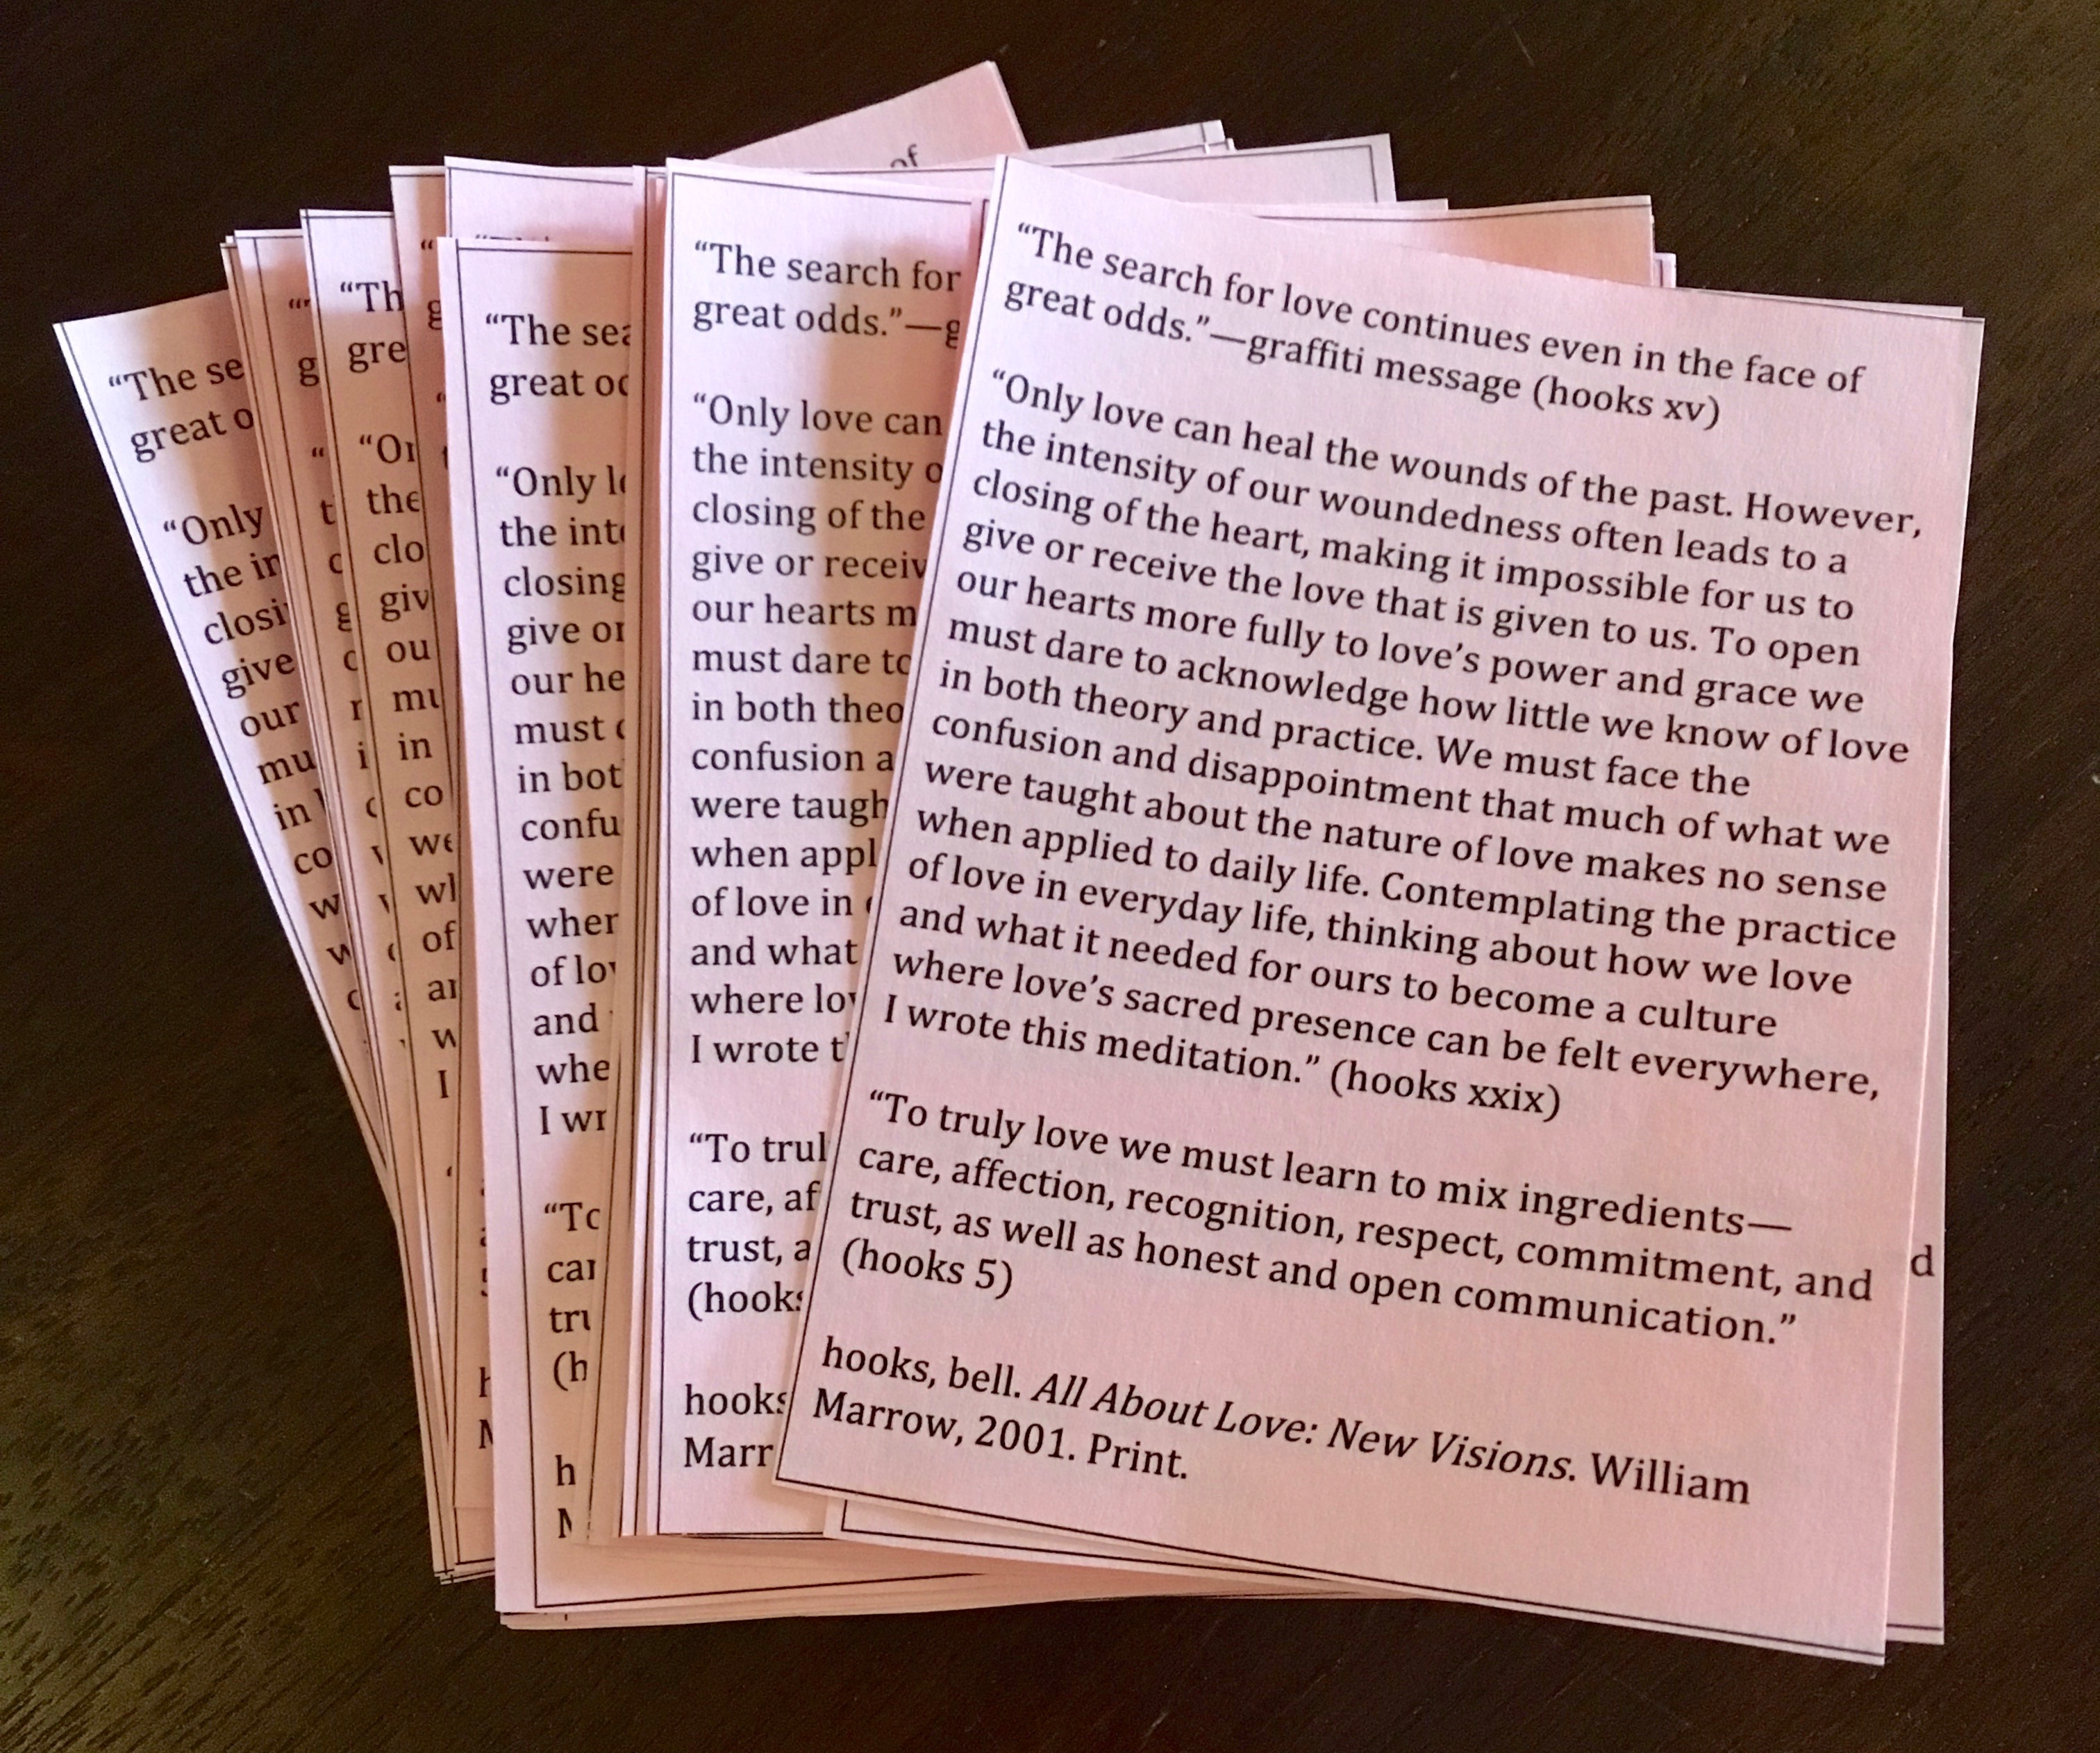 “The search for love continues even in the face of
great odds.”—graffiti message (hooks xv)
“Only love can heal the wounds of the past. However,
the intensity of our woundedness often leads to a
closing of the heart, making it impossible for us to
give or receive the love that is given to us. To open
our hearts more fully to love’s power and grace we
must dare to acknowledge how little we know of love
in both theory and practice. We must face the
confusion and disappointment that much of what we
were taught about the nature of love makes no sense
when applied to daily life. Contemplating the practice
of love in everyday life, thinking about how we love
and what it needed for ours to become a culture
where love’s sacred presence can be felt everywhere,
I wrote this meditation.” (hooks xxix)
“To truly love we must learn to mix ingredients—
care, affection, recognition, respect, commitment, and
trust, as well as honest and open communication.”
(hooks 5)
hooks, bell. All About Love: New Visions. William
Marrow, 2001. Print.
“The search for
great odds.”
“Only love can
the intensity
closing of the
give or
our hearts
must dare
in both
confusion
were
when
of love in
and what
where
I wrote
“To
care,
trust,
“The
great
“Only
the
closing
give
our
must
in
were
of
and
I
of